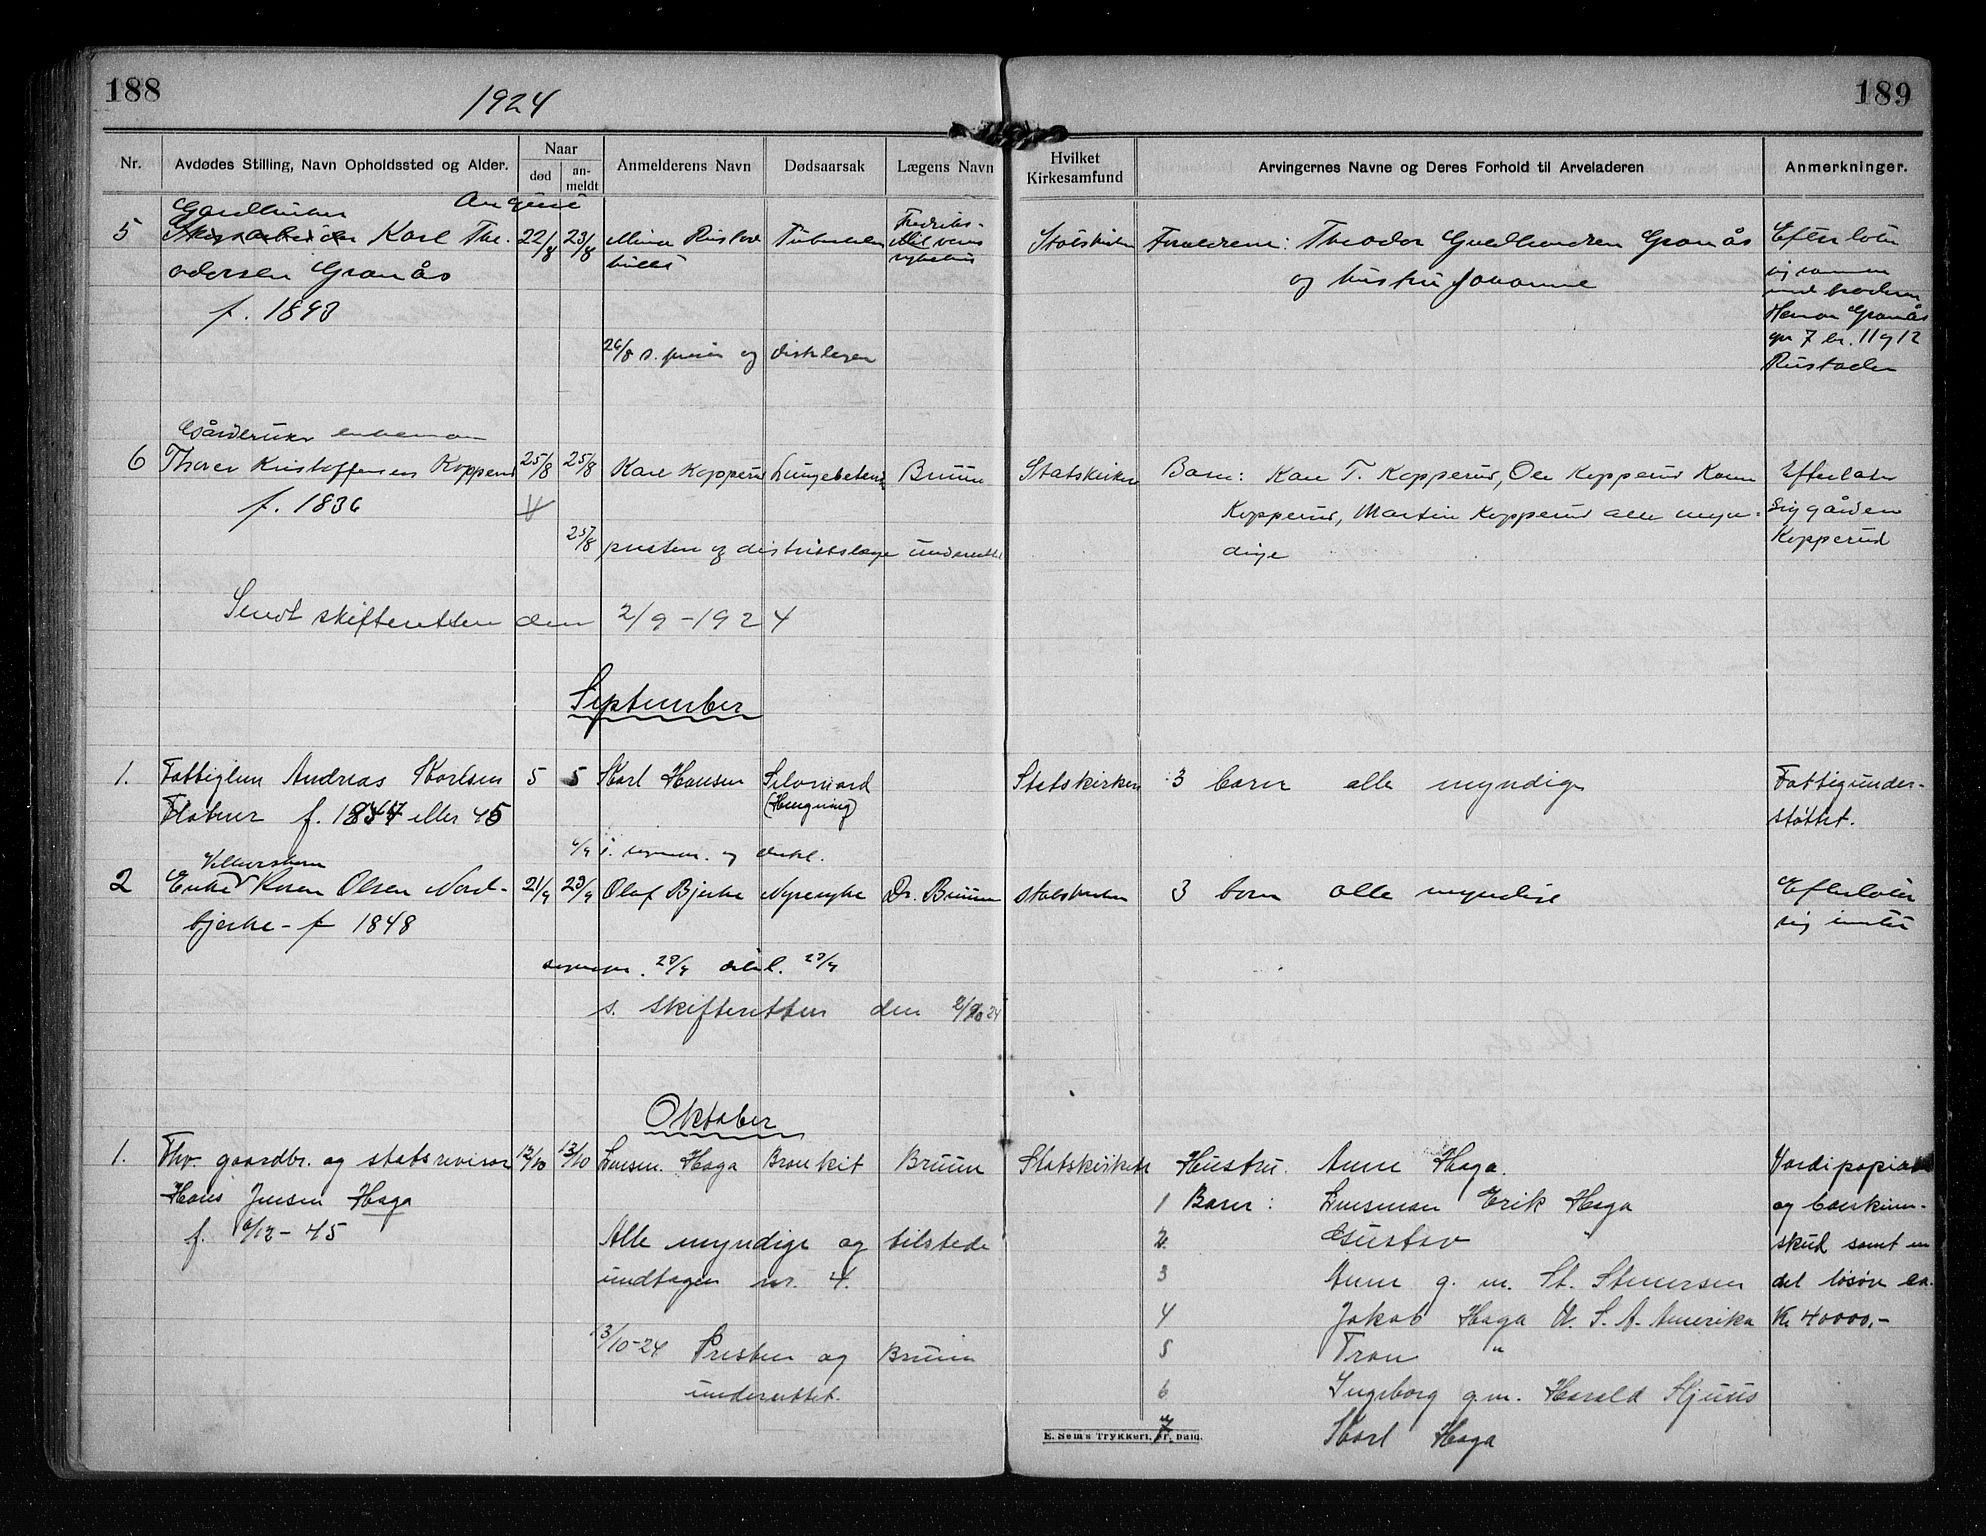 188
1924
189
Nr.
Avdødes Stilling, Navn Opholdssted og Alder.
Naar
død
an-
meldt
Anmelderens Navn
Dødsaarsak
Lægens Navn
Hvilket
Kirkesamfund
Arvingernes Navne og Deres Forhold til Arveladeren
Anmerkninger.
Gaardbruker August
5 Karl The- 22/8 23/8 Mina Rustad Tuberkulose Fredriks- Statskirken Forældrene: Theodor Gulbrandsen Granås Efterlater
odersen Granås og hustru Johanne sig sammen
f. 1893 med broderen
Granås
26/8 s. og distr.lægen gr 7 br. 11 og 12
Rustaden
Gårdbruker enkemann
6 Thorer Kristoffersen Kopperud 25/8 25/8 Kare Kopperud Lungebetend. Bruun Statskirken Barn: Kare T. Kopperud, Ole Kopperud Karen Efterlater
f. 1836 Kopperud, Martin Kopperud alle myn- sig gården
25/8 presten og distriktslæge underrettet dige Kopperud
Sendt skifteretten den 2/9-1924
September
1. Fattiglem Andreas Karlsen 5 5 Karl Hansen Selvmord Statskirken 3 barn alle myndige Fattigunder-
f. 1844 eller 45 (Hengning) støttet.
6/9 s. og
2 Enke Karen Olsen Nord- 21/9 23/9 Olaf Bjerke Nyresyke Dr. Bruun Statskirken 3 barn alle myndige Efterlater
bjerke - f 1848 sig intet
23/9 23/9
s. skifteretten den 2/10 24
Oktober
1. Fhv. gaardbr. og statsrevisor 12/10 13/10 Lensm. Haga Bronkit Bruun Statskirken Hustru Anne Haga. Verdipapirer
Hans Jensen Haga 1 Barn: Lensman Erik Haga og bøskinn-
f. 6/12-45 Alle myndige og tilstede 2. Gustav " skud samt en
undtagen nr. 4. 3 Anne g. m. St. Stenersen del løsøre ca.
4 Jakob Haga U. S. A. Amerika Kr 40000,-
13/10-24 Presten og Bruun 5 Tron "
underrettet. 6 Ingeborg g.m. Harald Hjuus
7 Karl Haga
E. Sem's Trykkeri, Fr.hald.